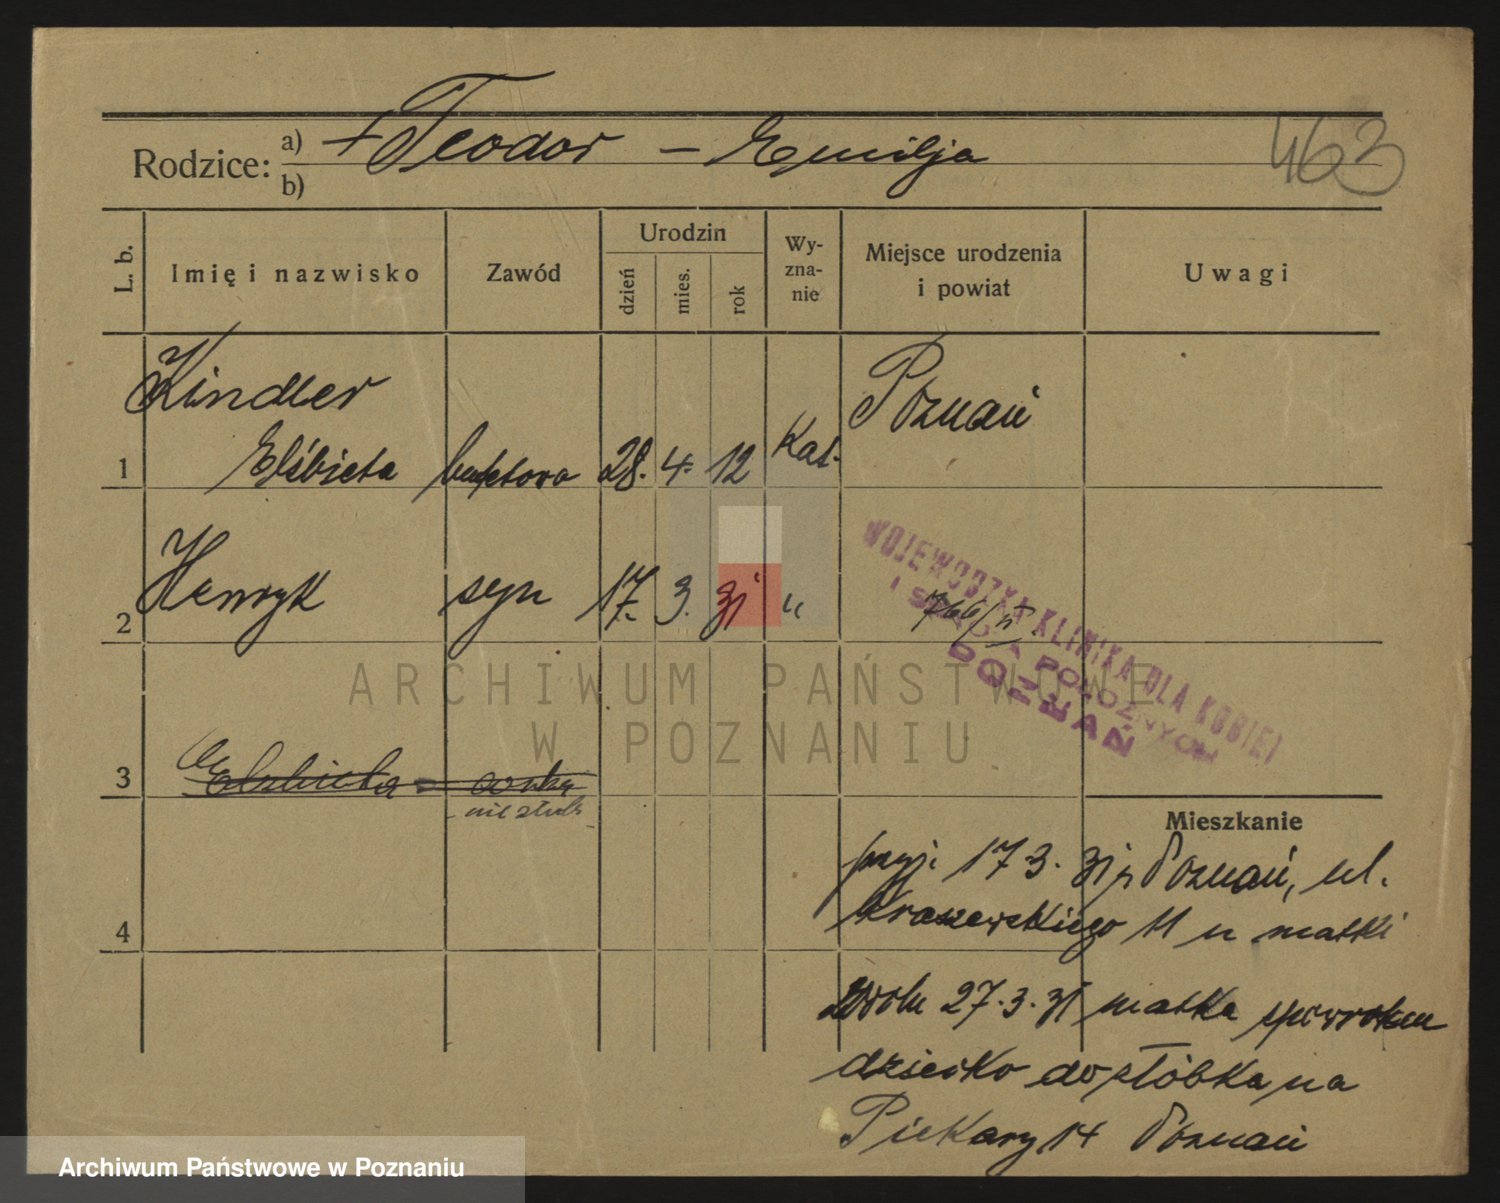 463
Rodzice: a) + Teodor – Emilja
b)
L. b.
Imię i nazwisko
Zawód
Urodzin
dzień
mies.
rok
Wy-
zna-
nie
Miejsce urodzenia
i powiat
Uwagi
Kindler
Poznań
1 Elżbieta 28. 4. 12 Kat.
2 Henryk syn 17. 3. 31 "
WOJEWÓDZKA KLINIKA DLA KOBIET
I SZKOŁA POŁOŻNYCH
POZNAŃ
3 Elżbieta córka
Mieszkanie
przyj. 17.3.31 Poznań, ul.
4 Kraszewskiego 11 u matki
27.3.31 matka
dziecko do żłóbka na
Piekary 14 Poznań
ARCHIWUM PAŃSTWOWE
W POZNANIU
Archiwum Państwowe w Poznaniu